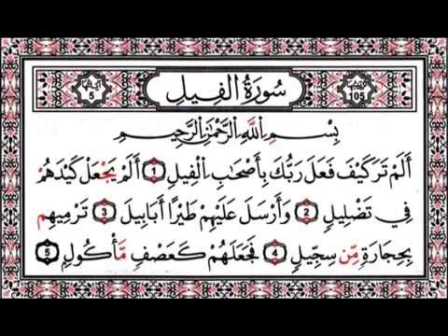 آياتها 5 سُورَةُ الْفِيلِ 105
بِسْمِ اللَّهِ الرَّحْمَٰنِ الرَّحِيمِ
أَلَمْ تَرَ كَيْفَ فَعَلَ رَبُّكَ بِأَصْحَابِ الْفِيلِ 1 أَلَمْ يَجْعَلْ كَيْدَهُمْ
فِي تَضْلِيلٍ 2 وَأَرْسَلَ عَلَيْهِمْ طَيْرًا أَبَابِيلَ 3 تَرْمِيهِم
بِحِجَارَةٍ مِّن سِجِّيلٍ 4 فَجَعَلَهُمْ كَعَصْفٍ مَّأْكُولٍ 5